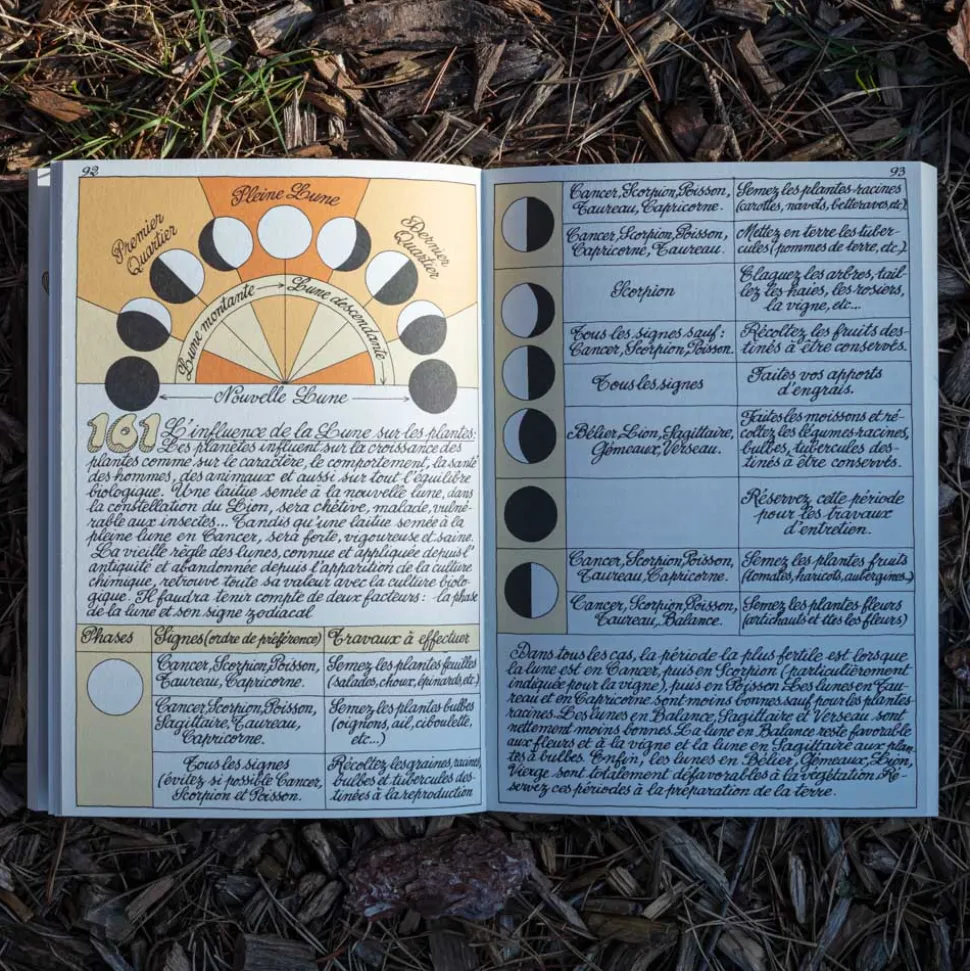 92
Pleine Lune
Premier
Quartier
Dernier
Quartier
Lune montante
Lune descendante
Nouvelle Lune
161 L'influence de la Lune sur les plantes:
Les planètes influent sur la croissance des
plantes comme sur le caractère, le comportement, la santé
des hommes, des animaux et aussi sur tout l'équilibre
biologique. Une laitue semée à la nouvelle lune, dans
la constellation du Lion, sera chétive, malade, vulné-
rable aux insectes... Tandis qu'une laitue semée à la
pleine lune en Cancer, sera forte, vigoureuse et saine.
La vieille règle des lunes, connue et appliquée depuis l'
antiquité et abandonnée depuis l'apparition de la culture
chimique, retrouve toute sa valeur avec la culture biolo-
gique. Il faudra tenir compte de deux facteurs: la phase
de la lune et son signe zodiacal
Phases
Signes (ordre de préférence)
Travaux à effectuer
Cancer, Scorpion, Poisson,
Taureau, Capricorne.
Semez les plantes feuilles
(salades, choux, épinards, etc)
Cancer, Scorpion, Poisson,
Sagittaire, Taureau,
Capricorne.
Semez les plantes bulbes
(oignons, ail, ciboulette,
etc...)
Tous les signes
(évitez si possible Cancer,
Scorpion et Poisson.
Récoltez les graines, racines
bulbes et tubercules des-
tinées à la reproduction
93
Cancer, Scorpion, Poisson,
Taureau, Capricorne.
Semez les plantes racines
(carottes, navets, betteraves, etc)
Cancer, Scorpion, Poisson,
Capricorne, Taureau.
Mettez en terre les tuber-
cules (pommes de terre, etc)
Scorpion
Elaguez les arbres, tail-
lez les haies, les rosiers,
la vigne, etc...
Tous les signes sauf:
Cancer, Scorpion, Poisson.
Récoltez les fruits des-
tinés à être conservés.
Tous les signes
Faites vos apports
d'engrais.
Bélier, Lion, Sagittaire,
Gémeaux, Verseau.
Faites les moissons et ré-
coltez les légumes-racines,
bulbes, tubercules des-
tinés à être conservés.
Réservez cette période
pour les travaux
d'entretien.
Cancer, Scorpion, Poisson,
Taureau, Capricorne.
Semez les plantes fruits
(tomates, haricots, aubergines..)
Cancer, Scorpion, Poisson,
Taureau, Balance.
Semez les plantes fleurs
(artichauts et les fleurs)
Dans tous les cas, la période la plus fertile est lorsque
la lune est en Cancer, puis en Scorpion (particulièrement
indiquée pour la vigne), puis en Poisson. Les lunes en Tau-
reau et en Capricorne sont moins bonnes sauf pour les plantes-
racines. Les lunes en Balance, Sagittaire et Verseau sont
nettement moins bonnes. La lune en Balance reste favorable
aux fleurs et à la vigne et la lune en Sagittaire aux plan-
tes à bulbes. Enfin, les lunes en Bélier, Gémeaux, Lion,
Vierge sont totalement défavorables à la végétation. Ré-
servez ces périodes à la préparation de la terre.